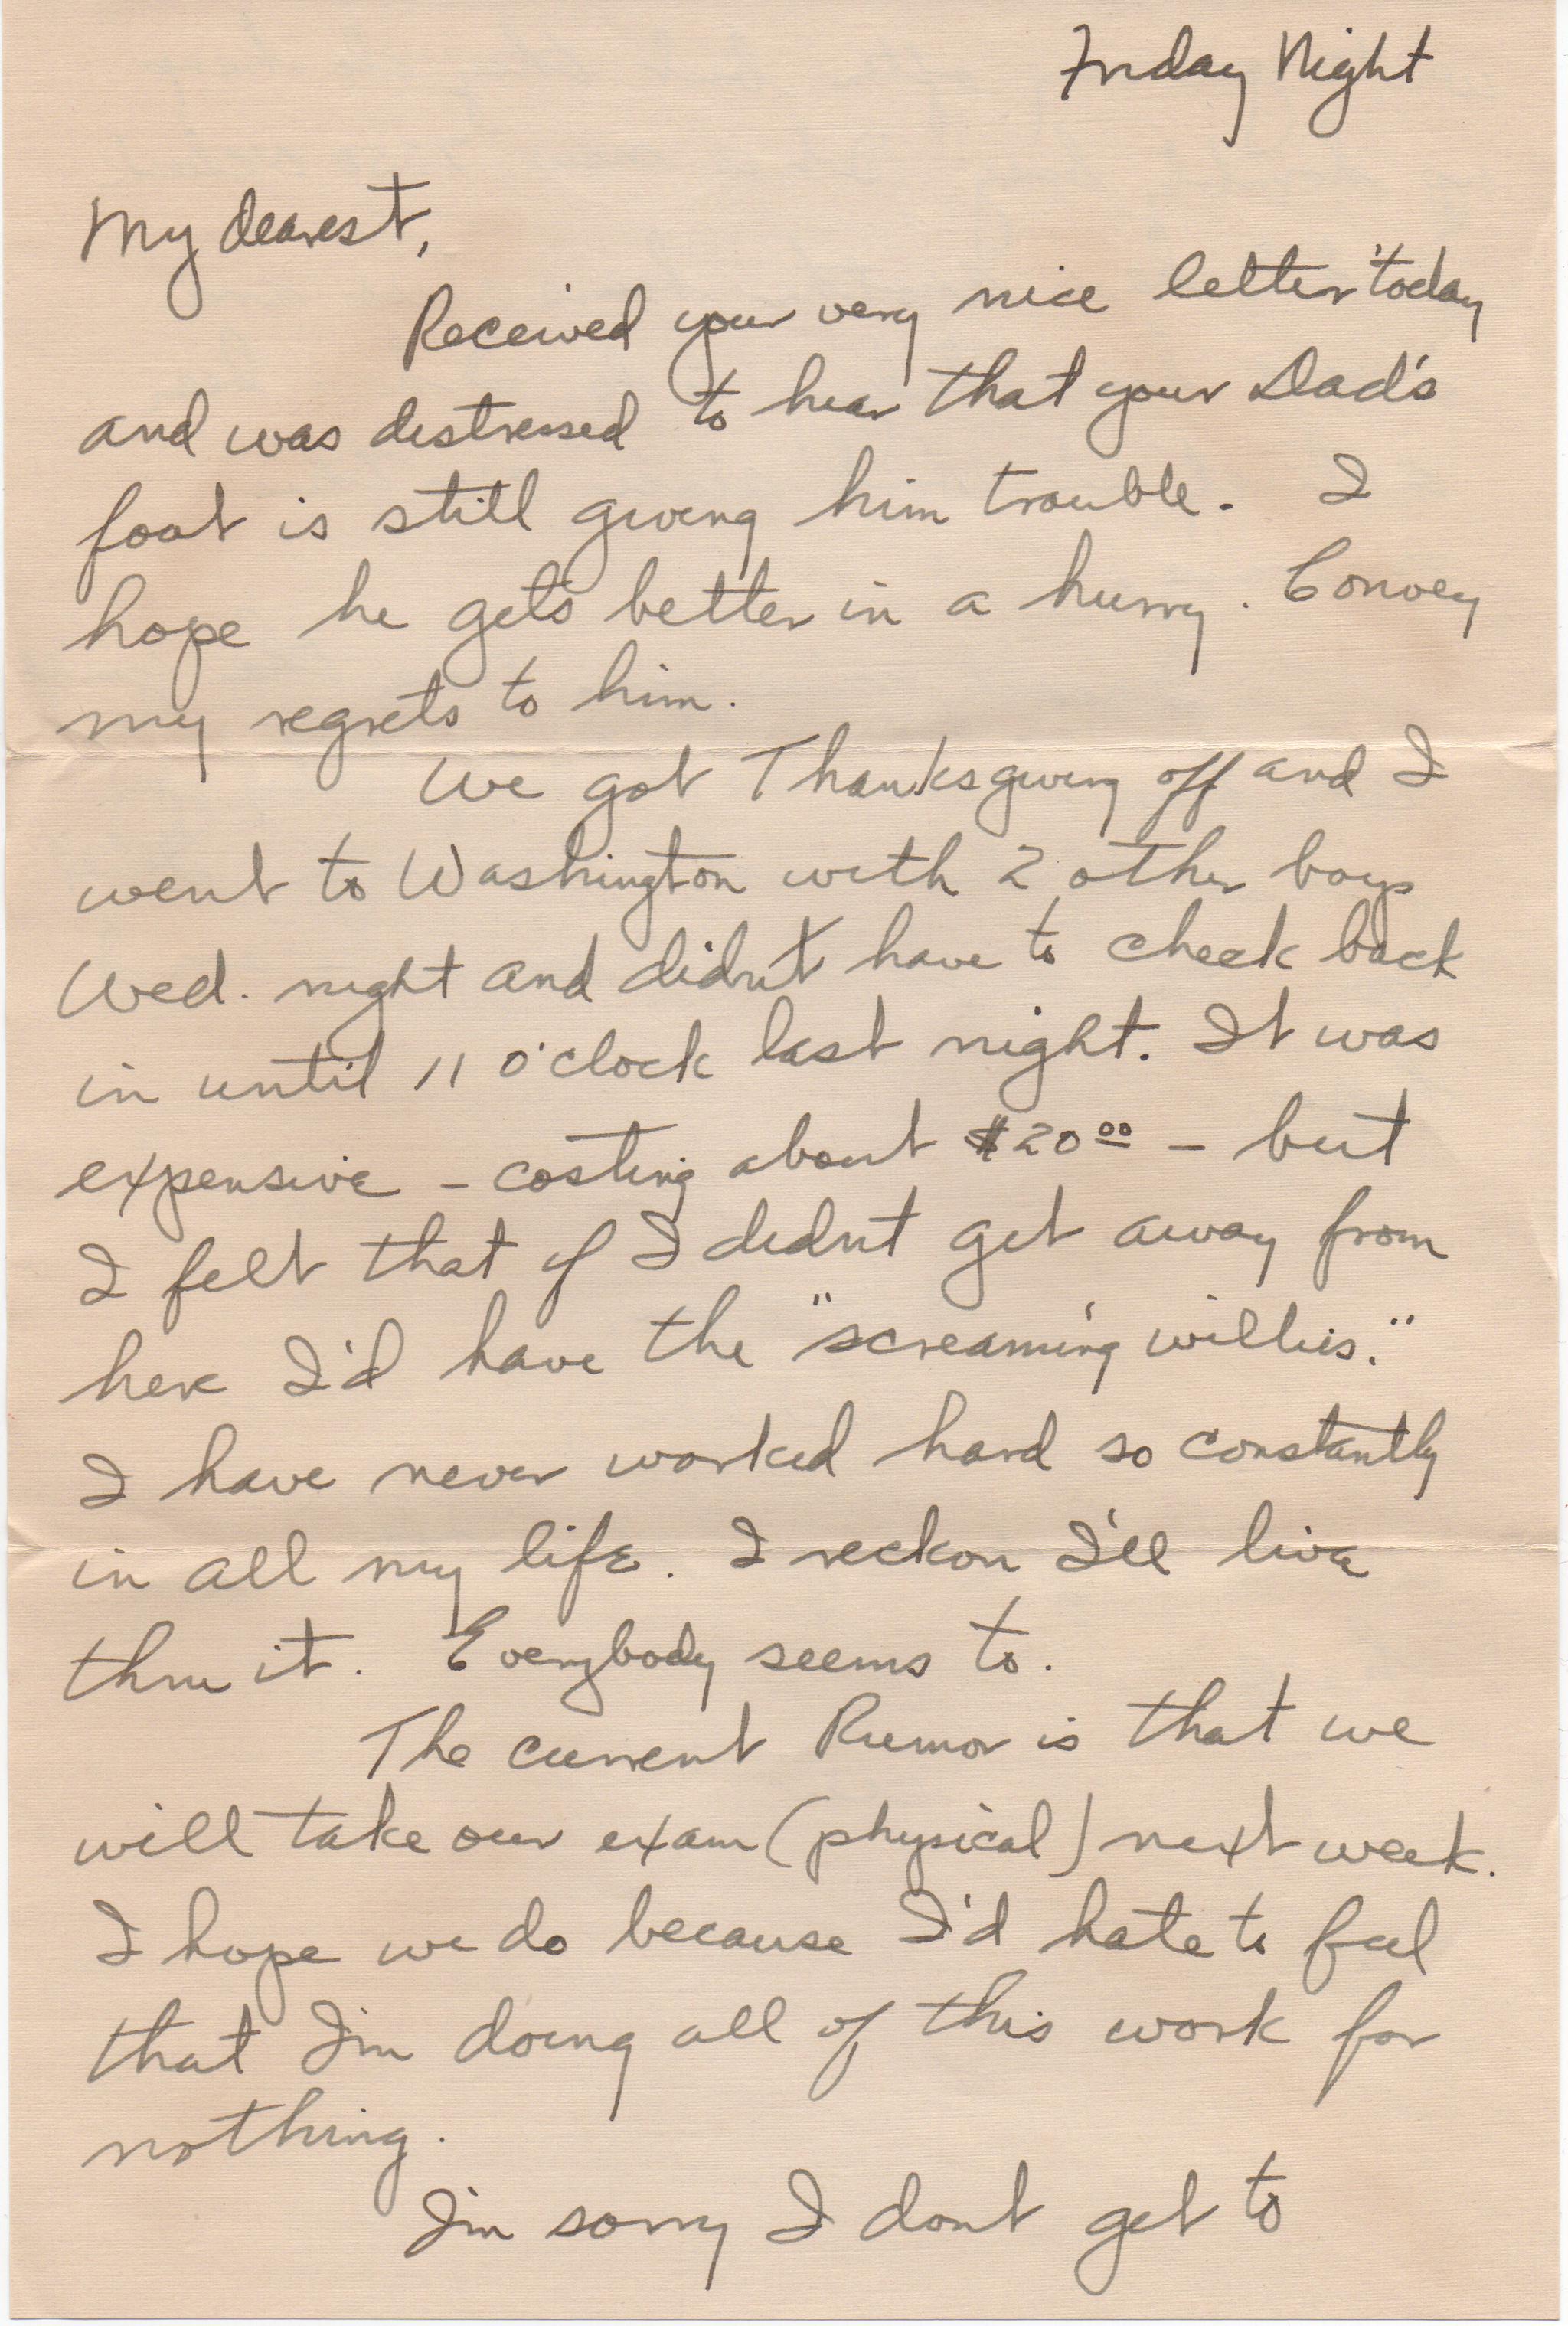 Friday Night
My dearest,
Received your very nice letter today
and was distressed to hear that your Dad's
foot is still giving him trouble. I
hope he gets better in a hurry. Convey
my regrets to him.
We got Thanksgiving off and I
went to Washington with 2 other boys
Wed. night and didn't have to check back
in until 11 o'clock last night. It was
expensive - costing about $20.00 - but
I felt that if I didn't get away from
here I'd have the "screaming willies."
I have never worked hard so constantly
in all my life. I reckon I'll live
thru it. Everybody seems to.
The current Rumor is that we
will take our exam (physical) next week.
I hope we do because I'd hate to feel
that I'm doing all of this work for
nothing.
I'm sorry I dont get to